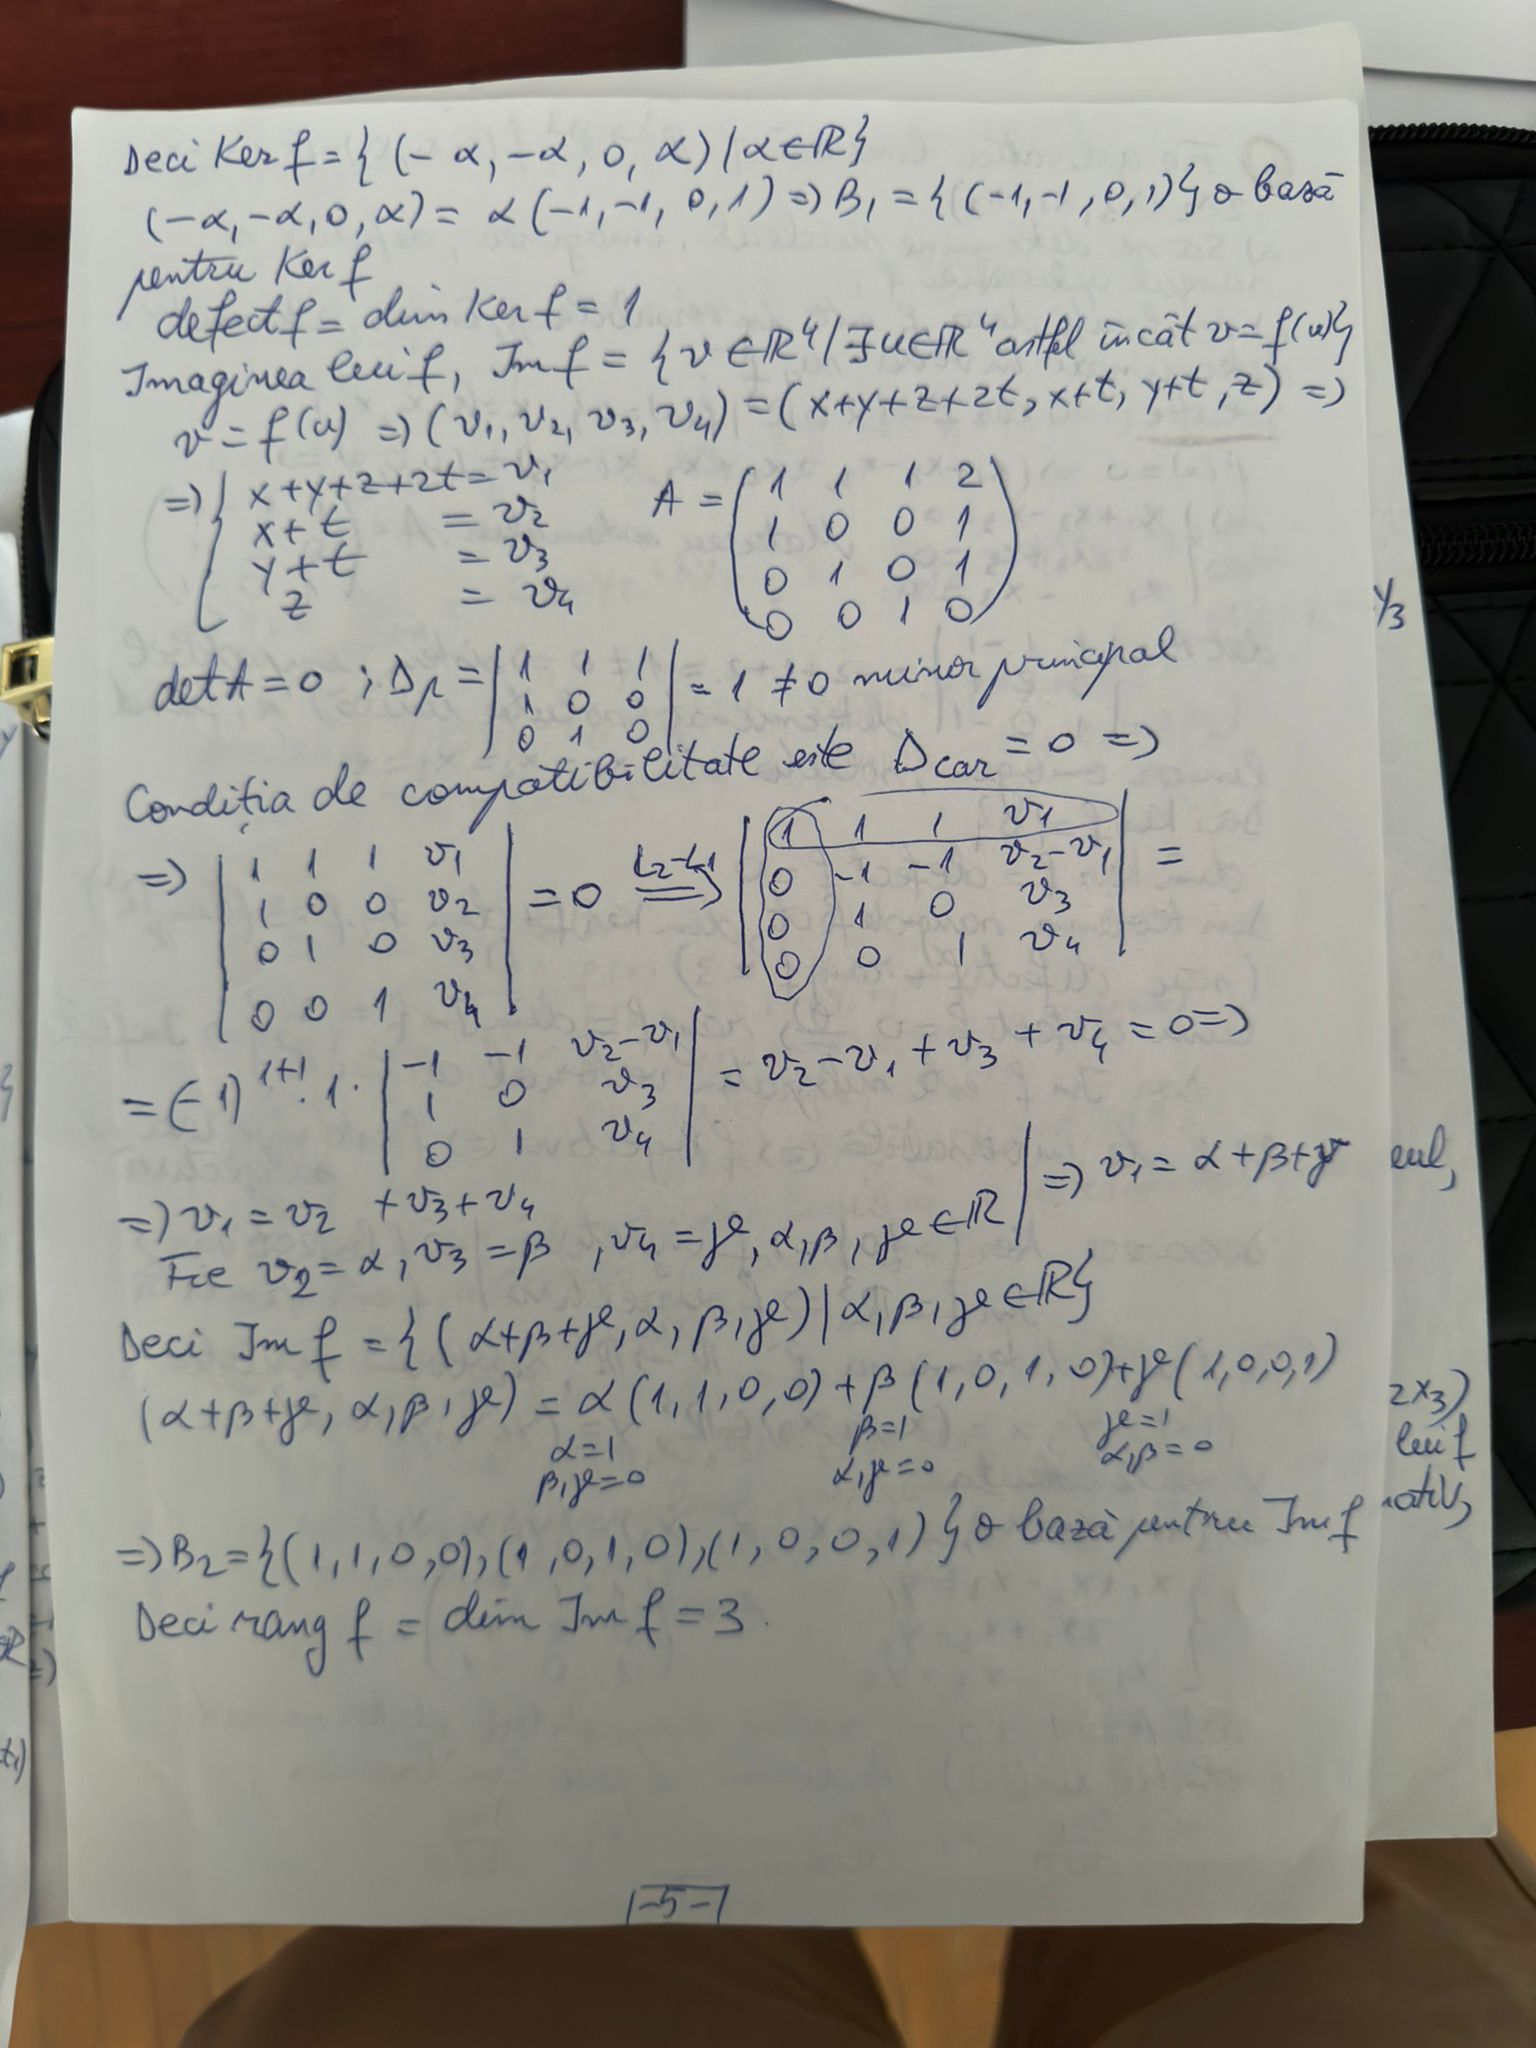 Deci Ker f = { (- α, -α, 0, α) / α∈ℝ}
(-α, -α, 0, α) = α (-1, -1, 0, 1) => B₁ = { (-1, -1, 0, 1)} o bază
pentru Ker f
defect f = dim Ker f = 1
Imaginea lui f, Im f = {v ∈ℝ⁴ / ∃u∈ℝ⁴ astfel încât v=f(u)}
v = f(u) => (v₁, v₂, v₃, v₄) = (x+y+z+2t, x+t, y+t, z) =>
=> { x+y+z+2t = v₁
x+t = v₂
y+t = v₃
z = v₄
A = ( 1 1 1 2
1 0 0 1
0 1 0 1
0 0 1 0 )
det A = 0 ; Δp = | 1 1 1 | = 1 ≠ 0 minor principal
1 0 0
0 1 0
Condiția de compatibilitate este Δcar = 0 =>
=> | 1 1 1 v₁ | = 0 L₂-L₁ ==> | 1 1 1 v₁ | =
1 0 0 v₂ 0 -1 -1 v₂-v₁
0 1 0 v₃ 0 1 0 v₃
0 0 1 v₄ 0 0 1 v₄
= (-1)¹⁺¹ · 1 · | -1 -1 v₂-v₁ | = v₂ - v₁ + v₃ + v₄ = 0 =>
1 0 v₃
0 1 v₄
=> v₁ = v₂ + v₃ + v₄
Fie v₂ = α, v₃ = β, v₄ = γ, α, β, γ ∈ ℝ | => v₁ = α+β+γ
Deci Im f = { (α+β+γ, α, β, γ) | α, β, γ ∈ ℝ}
(α+β+γ, α, β, γ) = α (1, 1, 0, 0) + β (1, 0, 1, 0) + γ (1, 0, 0, 1)
α=1 β=1 γ=1
β, γ=0 α, γ=0 α, β=0
=> B₂ = {(1, 1, 0, 0), (1, 0, 1, 0), (1, 0, 0, 1) } o bază pentru Im f
Deci rang f = dim Im f = 3.
-5-
y₃
2x₃)
lui f